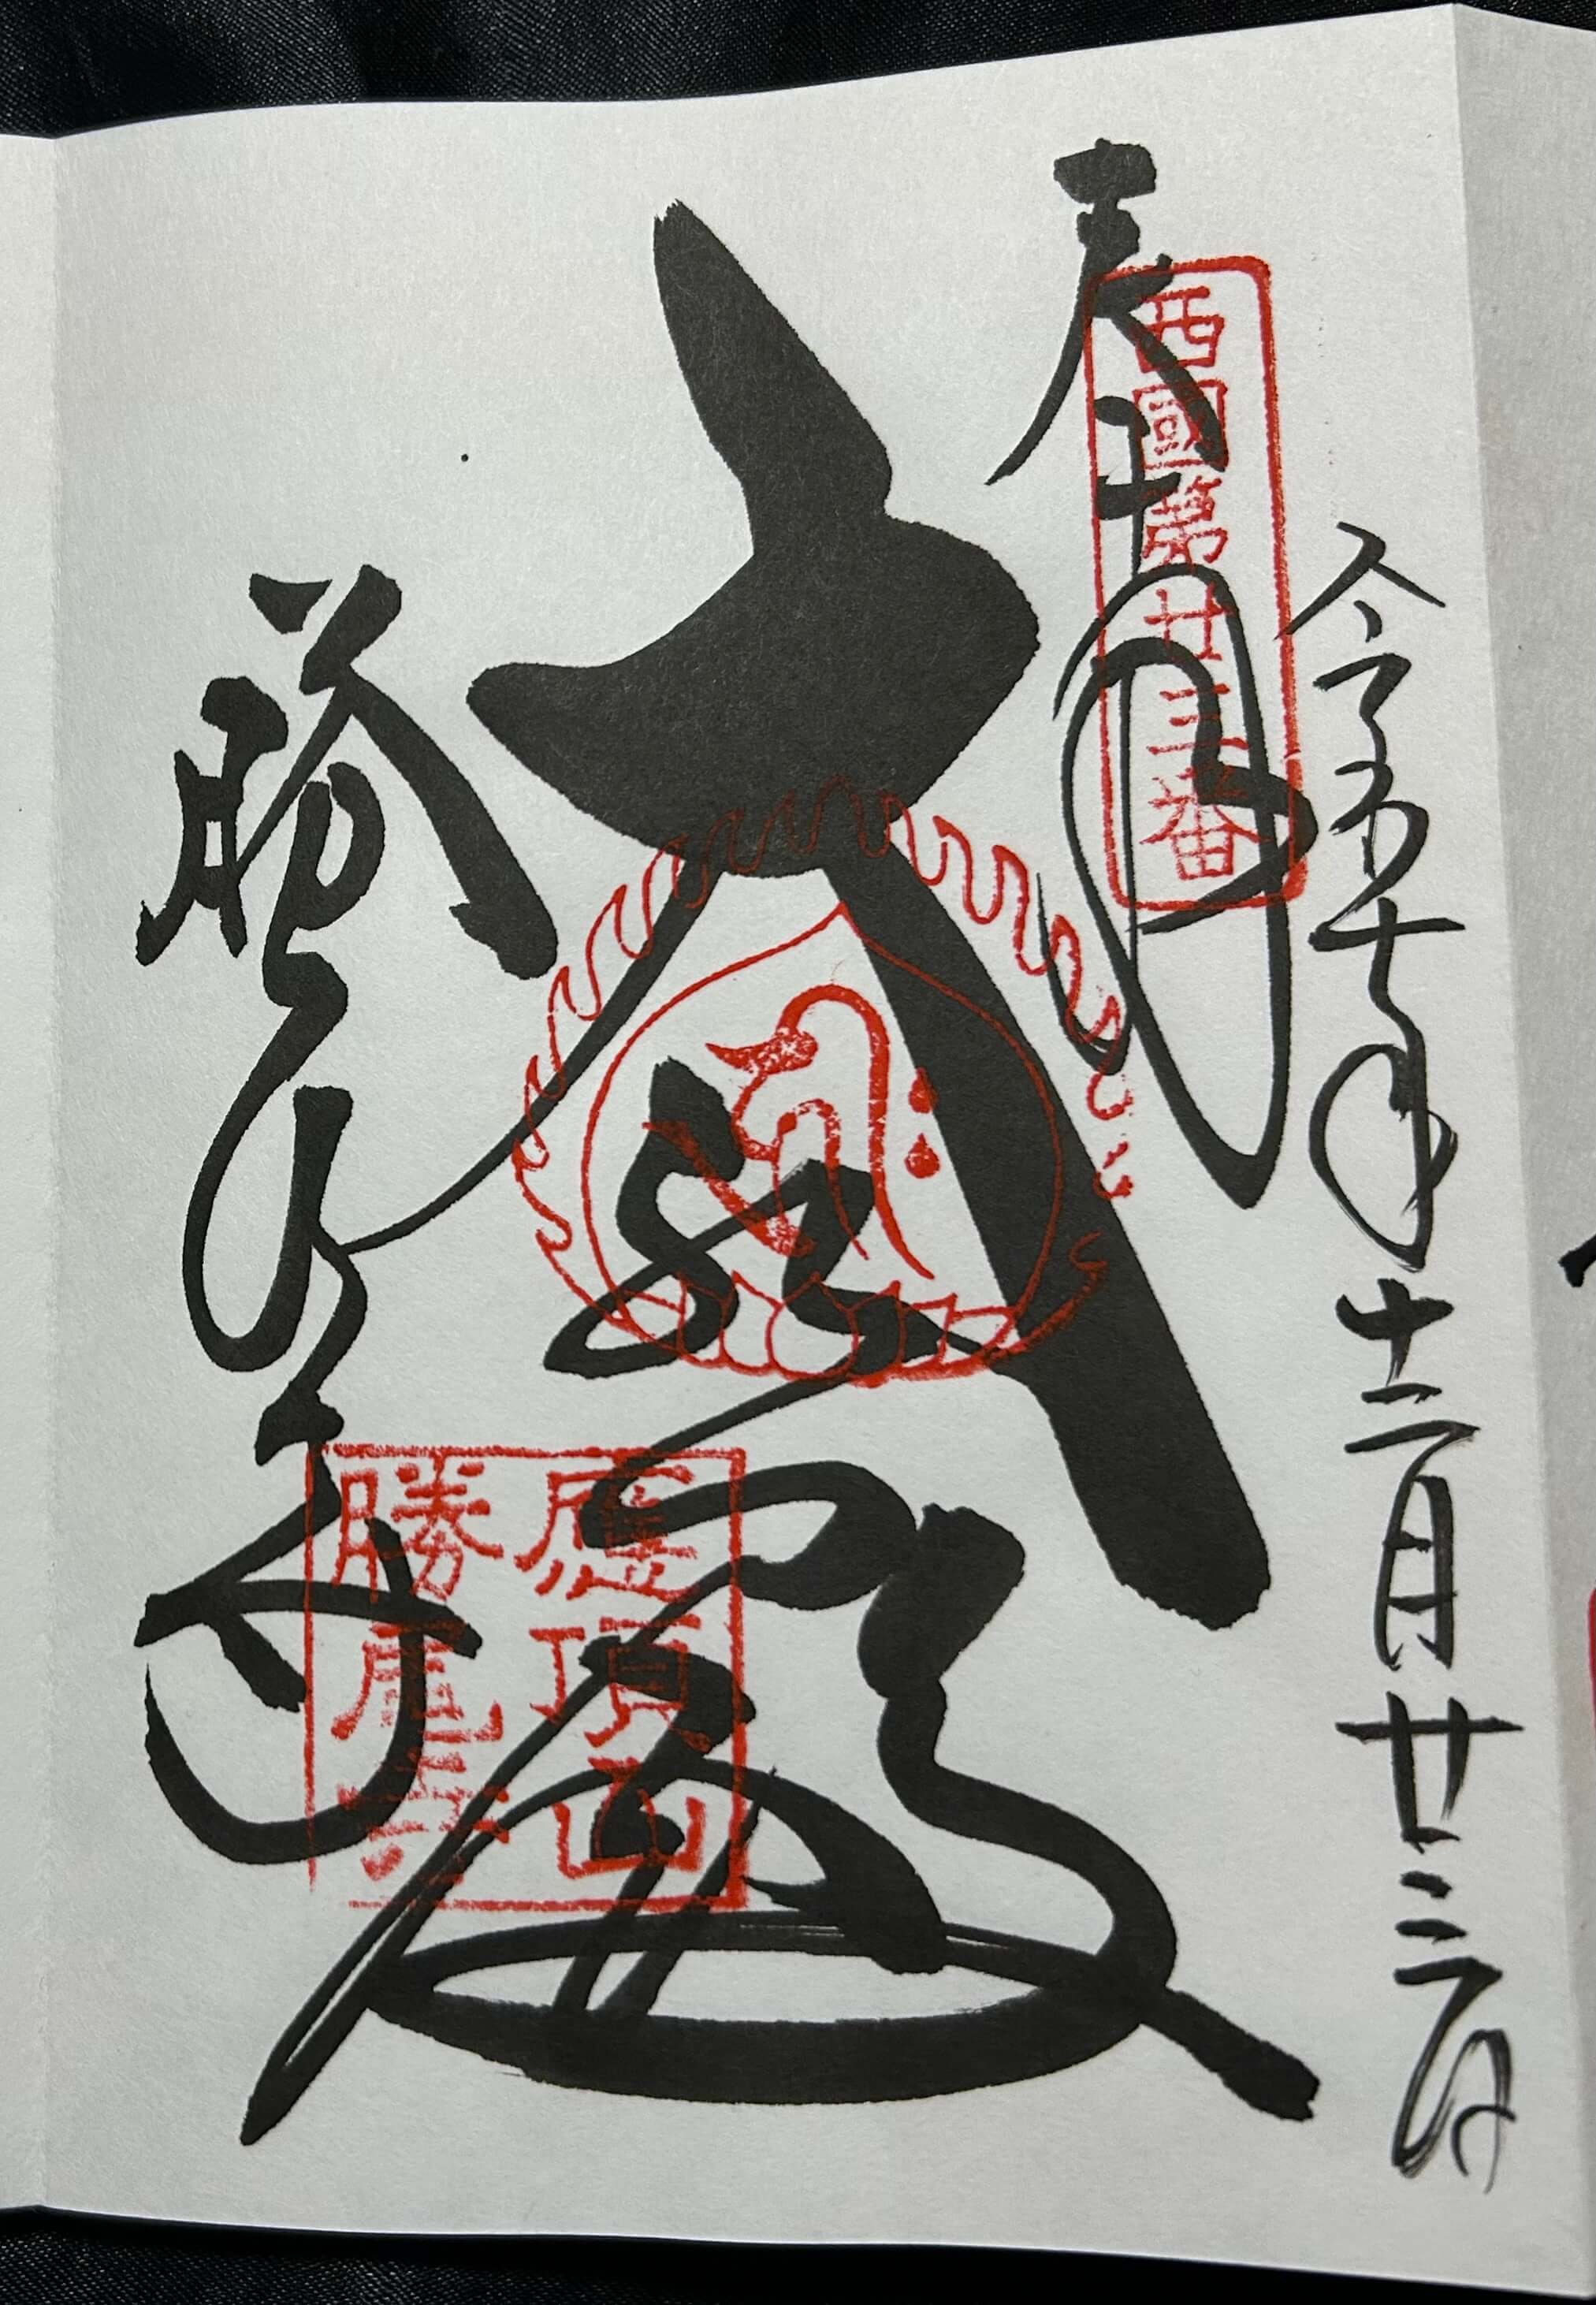 令和五年十二月廿三日
奉拝
西國第廿三番
大悲殿
應頂山
勝尾寺
勝尾寺